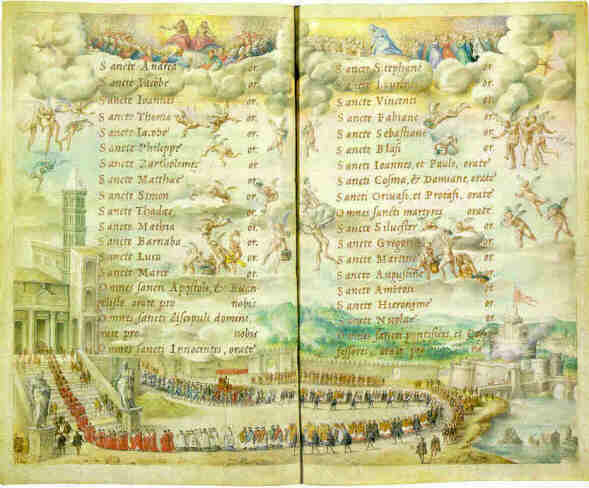 Sancte Andrea or.
Sancte Iacobe or.
Sancte Ioannes or.
Sancte Thoma or.
Sancte Iacobe or.
Sancte Philippe or.
Sancte Bartholomee or.
Sancte Matthæe or.
Sancte Simon or.
Sancte Thadæe or.
Sancte Mathia or.
Sancte Barnaba or.
Sancte Luca or.
Sancte Marce or.
Omnes sancti Apostoli, & Euan
gelistæ orate pro nobis
Omnes sancti discipuli domini,
orate pro nobis
Omnes sancti Innocentes, orate
Sancte Stephane or.
Sancte Laurenti or.
Sancte Vincenti or.
Sancte Fabiane or.
Sancte Sebastiane or.
Sancte Blasi or.
Sancti Ioannes, et Paule, orate
Sancti Cosma, & Damiane, orate
Sancti Geruasi, et Protasi, orate
Omnes sancti martyres orate
Sancte Siluester or.
Sancte Gregori or.
Sancte Martine or.
Sancte Augustine or.
Sancte Ambrosi or.
Sancte Hieronyme or.
Sancte Nicolae or.
Omnes sancti pontifices, et Con
fessores, orate pro